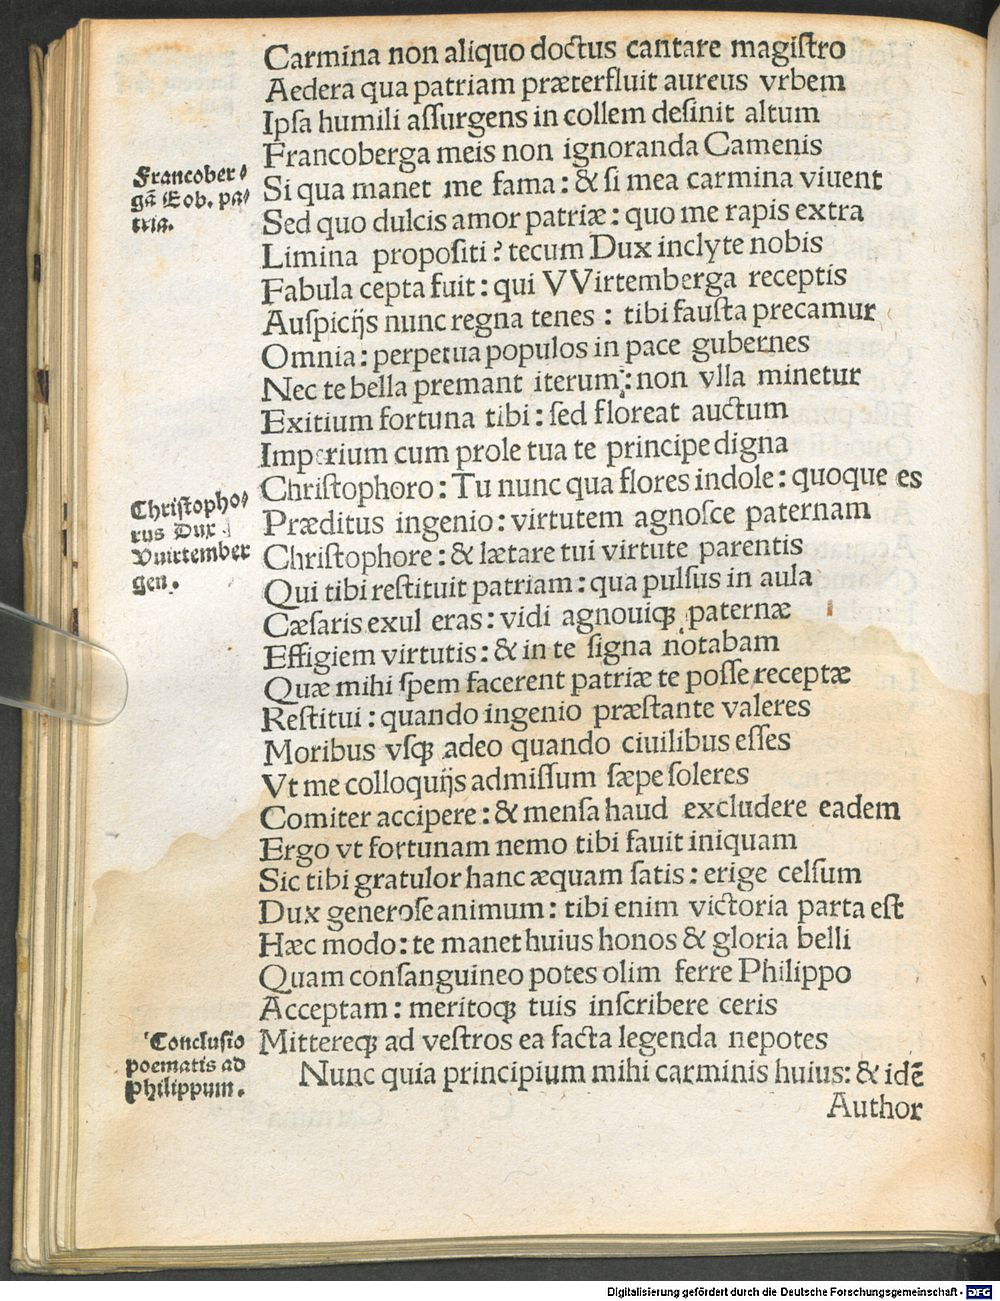 Carmina non aliquo doctus cantare magiſtro
Aedera qua patriam præterfluit aureus vrbem
Ipſa humili aſſurgens in collem deſinit altum
Francoberga meis non ignoranda Camenis
Francober⸗
gã Eob. pa⸗
tria.
Si qua manet me fama: & ſi mea carmina viuent
Sed quo dulcis amor patriæ: quo me rapis extra
Limina propoſiti? tecum Dux inclyte nobis
Fabula cepta fuit: qui VVirtemberga receptis
Auſpicijs nunc regna tenes: tibi fauſta precamur
Omnia: perpetua populos in pace gubernes
Nec te bella premant iterum: non vlla minetur
Exitium fortuna tibi: ſed floreat auctum
Imperium cum prole tua te principe digna
Chriſtophoro: Tu nunc qua flores indole: quoque es
Chriſtopho⸗
rus Dux
Vuirtember
gen.
Præditus ingenio: virtutem agnoſce paternam
Chriſtophore: & lætare tui virtute parentis
Qui tibi reſtituit patriam: qua pulſus in aula
Cæſaris exul eras: vidi agnouiqꝫ paternæ
Effigiem virtutis: & in te ſigna notabam
Quæ mihi ſpem facerent patriæ te poſſe receptæ
Reſtitui: quando ingenio præſtante valeres
Moribus vſqꝫ adeo quando ciuilibus eſſes
Vt me colloquijs admiſſum ſæpe ſoleres
Comiter accipere: & menſa haud excludere eadem
Ergo vt fortunam nemo tibi fauit iniquam
Sic tibi gratulor hanc æquam ſatis: erige celſum
Dux generoſe animum: tibi enim victoria parta eſt
Hæc modo: te manet huius honos & gloria belli
Quam conſanguineo potes olim ferre Philippo
Acceptam: meritoqꝫ tuis inſcribere ceris
Mittereqꝫ ad veſtros ea facta legenda nepotes
Concluſio
poematis ad
Philippum.
Nunc quia principium mihi carminis huius: & idẽ
Author
Digitalisierung gefördert durch die Deutsche Forschungsgemeinschaft - DFG